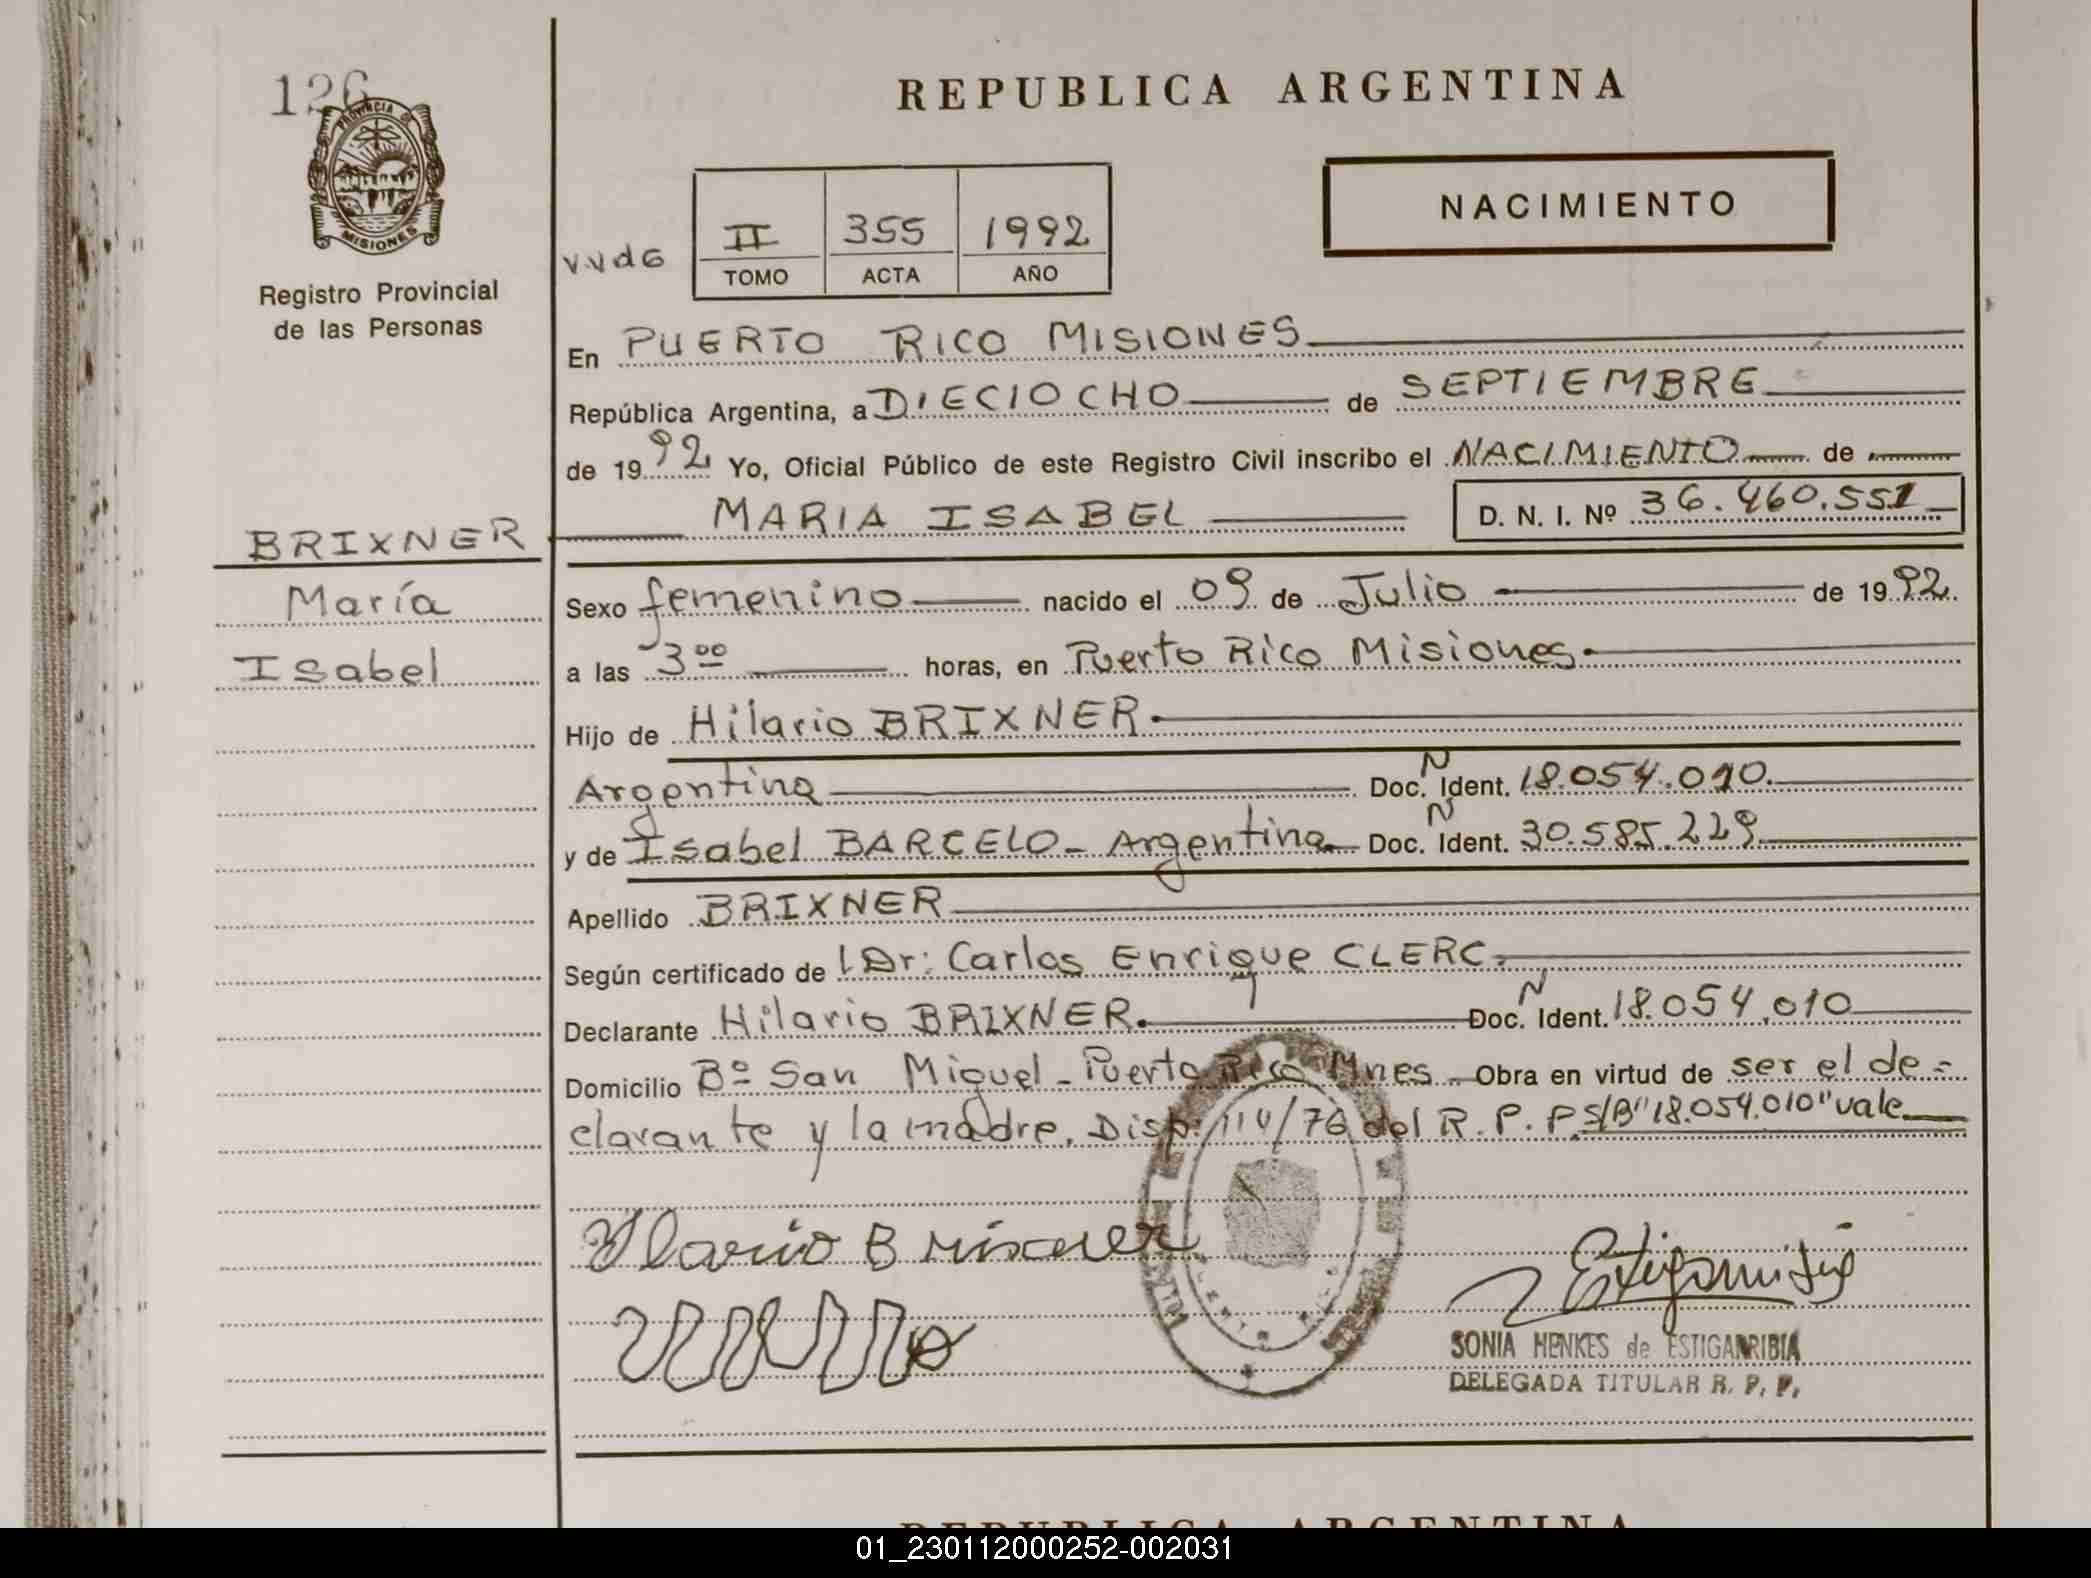 126
PROVINCIA DE
MISIONES
Registro Provincial
de las Personas
REPUBLICA ARGENTINA
NACIMIENTO
II 355 1992
TOMO ACTA AÑO
En PUERTO RICO MISIONES
República Argentina, a DIECIOCHO de SEPTIEMBRE
de 1992 Yo, Oficial Público de este Registro Civil inscribo el NACIMIENTO de
MARIA ISABEL D. N. I. Nº 36.460.551
BRIXNER
María
Isabel
Sexo femenino nacido el 09 de Julio de 1992.
a las 3 00 horas, en Puerto Rico Misiones.
Hijo de Hilario BRIXNER.
Argentina Doc. N Ident. 18.054.010.
y de Isabel BARCELO - Argentina. Doc. N Ident. 30.585.229
Apellido BRIXNER
Según certificado de l Dr: Carlos Enrique CLERC.
Declarante Hilario BRIXNER. Doc. N Ident. 18.054.010
Domicilio Bº San Miguel - Puerto Rico Mnes - Obra en virtud de ser el de=
clarante y la madre. Disp. 114/76 del R. P. P. S/B "18.054.010" vale
Ilario Brixner
Estigarribia
SONIA HENKES de ESTIGARRIBIA
DELEGADA TITULAR R. P. P.
REPUBLICA ARGENTINA
01_230112000252-002031